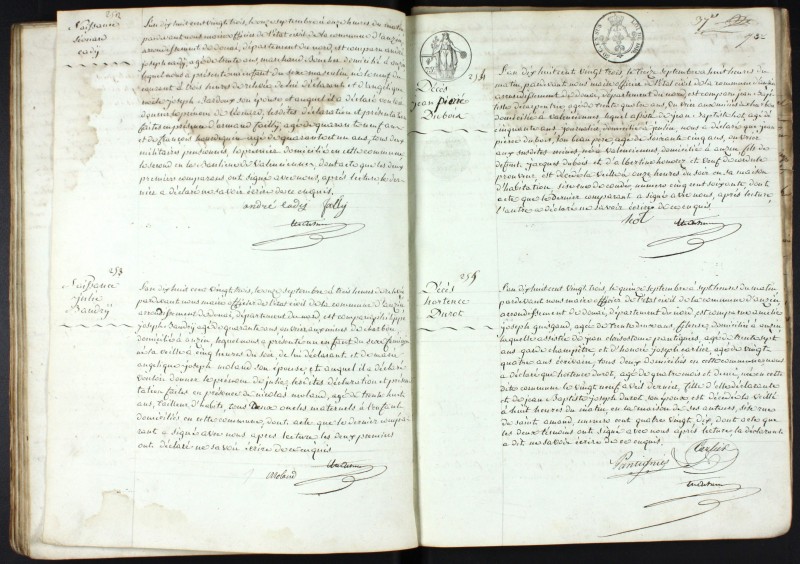 Naissance
L'an dix huit cent vingt trois, le onze septembre à onze heures du matin
pardevant nous maire officier de l'état civil de la commune d'anzin
arrondissement de douai, département du nord, est comparu andré
joseph
lequel nous a présenté un enfant du sexe masculin, né le neuf du
courant à trois heures de relevée, de lui déclarant et d'angélique
son épouse et auquel il a déclaré vouloir
donner le prénom de Léonard, les dites déclaration et présentation
faites en présence d'armand failly, agé de quarante neuf ans
et de françois agé de quarante et un ans, tous deux
militaires pensionnés, le premier domicilié en cette commune
le second en la banlieue de Valenciennes, dont acte que les deux
premiers comparans ont signé avec nous, après lecture le der-
nier a déclaré ne savoir écrire de ce enquis.
253
Naissance
julie
Baudry
L'an dix huit cent vingt trois, le onze septembre à trois heures de relevée
pardevant nous maire officier de l'état civil de la commune d'anzin
arrondissement de douai, département du nord, est comparu philippe
joseph Baudry agé de quarante ans, ouvrier aux mines de charbon
domicilié à anzin, lequel nous a présenté un enfant du sexe féminin
né la veille à cinq heures du soir, de lui déclarant et de marie
angélique joseph moland son épouse, et auquel il a déclaré
vouloir donner le prénom de julie, les dites déclaration et présen-
tation faites en présence de nicolas moland, agé de trente huit
ans, tous deux oncles maternels à l'enfant
domiciliés en cette commune, dont acte que le dernier compa-
rant a signé avec nous après lecture les deux premiers
ont déclaré ne savoir écrire de ce enquis.
Moland
254
Décès
jean pierre
Dubois
L'an dix huit cent vingt trois le treize septembre à huit heures du
matin, pardevant nous maire officier de l'état civil de la commune d'anzin
arrondissement de douai, département du nord, est comparu jean bap-
tiste agé de trente quatre ans, ouvrier aux mines
domicilié à Valenciennes, lequel assisté de jean Baptiste hot, agé de
cinquante ans journalier, domicilié à anzin, nous a déclaré que jean
pierre dubois, son beau père, agé de soixante cinq ans, ouvrier
aux susdites mines, né à Valenciennes, domicilié à anzin, fils de
défunt jacques dubois et d'albertine et veuf de
est décédé la veille à onze heures du soir en sa maison
d'habitation, sise rue de condé, numéro cinq cent soixante, dont
acte que le dernier comparant a signé avec nous, après lecture,
l'autre a déclaré ne savoir écrire de ce enquis.
255
Décès
hortence
Durot
L'an dix huit cent vingt trois, le quinze septembre à sept heures du matin
pardevant nous maire officier de l'état civil de la commune d'anzin
arrondissement de douai, département du nord, est comparue
joseph agée de trente deux ans, fileuse, domiciliée à anzin
laquelle assistée de jean pantignies, agé de trente sept
ans garde champêtre, et d'honoré joseph carlier, agé de vingt
quatre ans écrivain, tous deux domiciliés en cette commune nous
a déclaré que hortence durot, agée de quatre mois et demi, née en cette
dite commune le vingt neuf avril dernier, fille d'elle déclarante
et de jean Baptiste joseph durot son époux est décédée la veille
à huit heures du matin, en la maison de ses auteurs, sise rue
de saint amand, numéro cent quatre vingt dix, dont acte que
les deux témoins ont signé avec nous après lecture, la déclarante
a dit ne savoir écrire de ce enquis.
Pantignies
Carlier